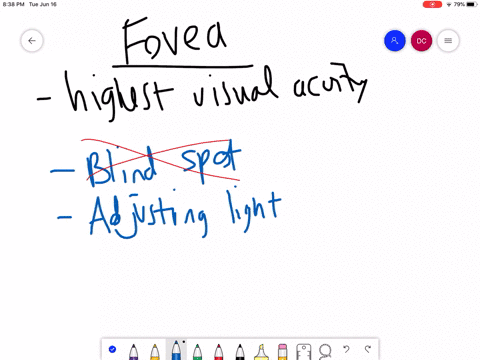 8:38 PM Tue Jun 16
79%
DC
Fovea
- highest visual acuity
- Blind spot
- Adjusting light